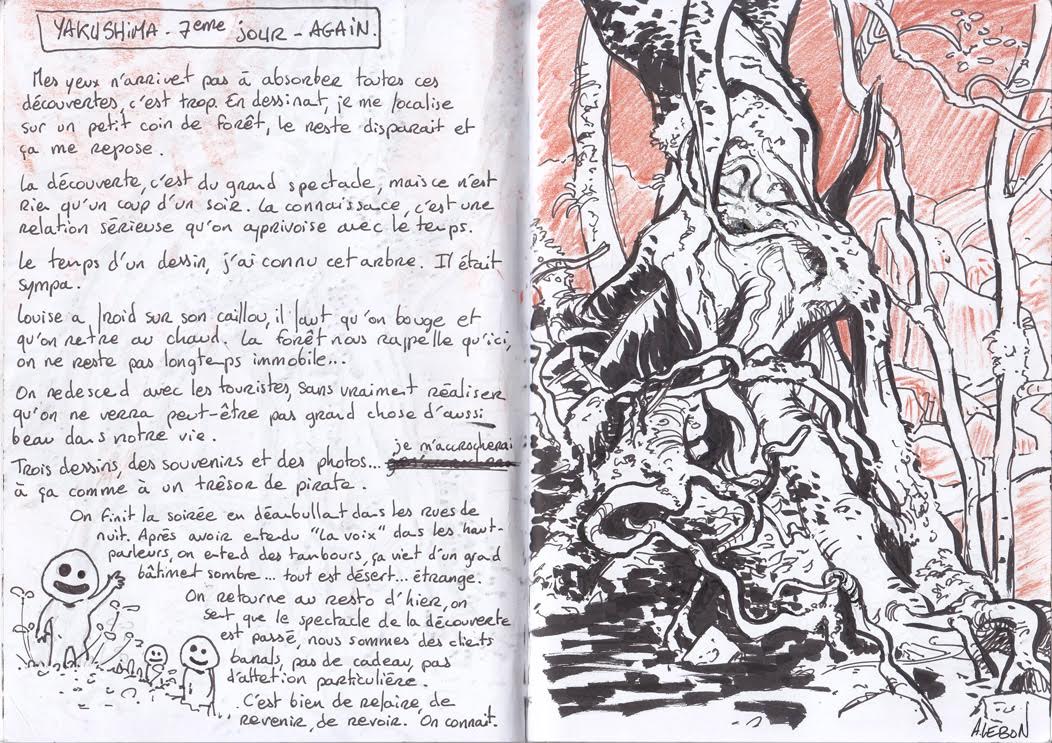 YAKUSHIMA - 7eme JOUR - AGAIN.
Mes yeux n'arrivet pas à absorber toutes ces
découvertes, c'est trop. En dessinat, je me localise
sur un petit coin de forêt, le reste disparait et
ça me repose.
La découverte, c'est du grand spectacle, mais ce n'est
rien qu'un coup d'un soir. La connaissace, c'est une
relation sérieuse qu'on apprivoise avec le temps.
Le temps d'un dessin, j'ai connu cet arbre. Il était
sympa.
Louise a froid sur son caillou, il faut qu'on bouge et
qu'on retre au chaud. La forêt nous rappelle qu'ici,
on ne reste pas longtemps immobile...
On redesced avec les touristes, sans vraiment réaliser
qu'on ne verra peut-être pas grand chose d'aussi
beau dans notre vie.
Trois dessins, des souvenirs et des photos... je m'accrocherai
à ça comme à un trésor de pirate.
On finit la soirée en déanbullat dans les rues de
nuit. Après avoir entedu "la voix" dans les haut-
parleurs, on ented des tambours, ça viet d'un grad
bâtimet sombre... tout est désert... étrange.
On retourne au resto d'hier, on
set que le spectacle de la découverte
est passé, nous sommes des cliets
banals, pas de cadeau, pas
d'attetion particulière.
C'est bien de refaire, de
revenir, de revoir. On connait.
A.LEBON